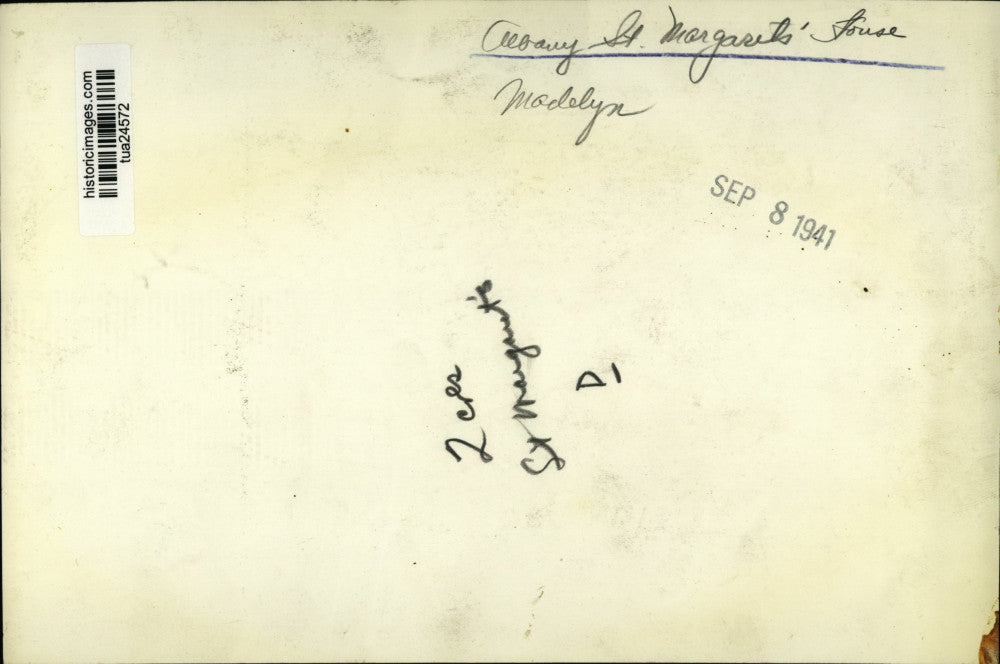 Albany St. Margarets' House
Madelyn
historicimages.com
tua24572
SEP 8 1941
2 cps
St Margaret's
D1